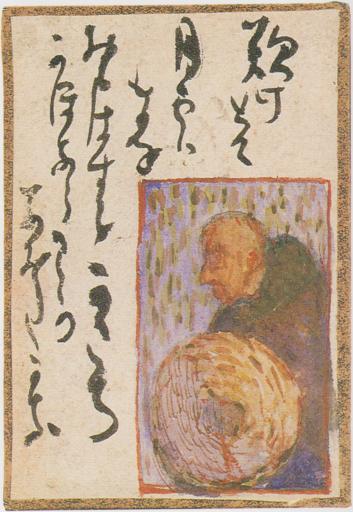 歎けとて
月やは
ものを
おもはするかこち
かほなるわか
なみたかな